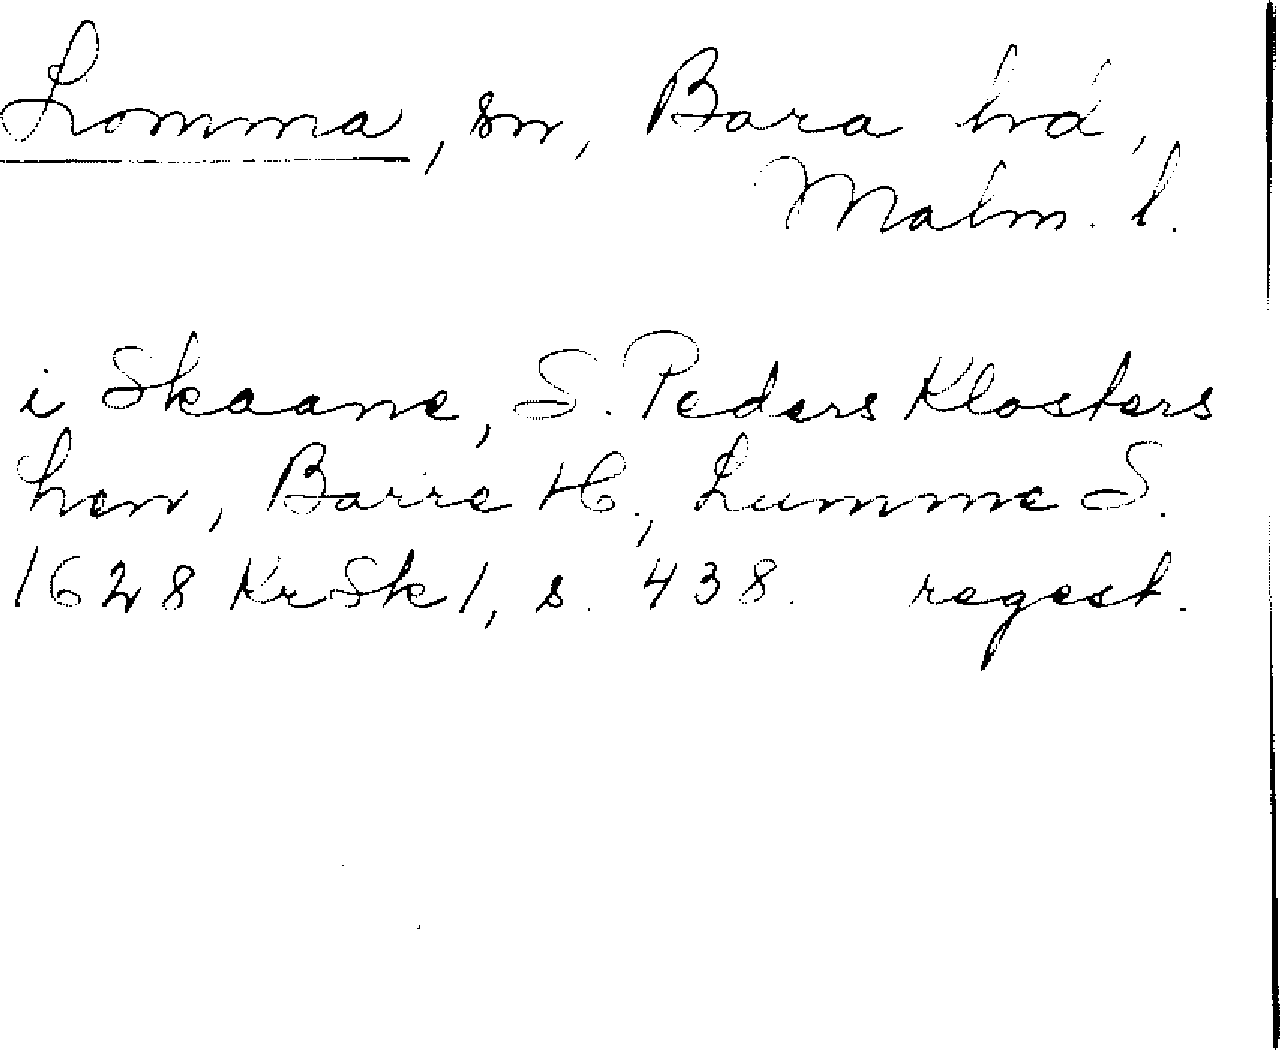 Lomma, sn, Bara hd,
Malm. l.
i Skaane, S. Peders Klosters
Len, Barre H., Lumme S.
1628 KrSk 1, s. 438. regest.